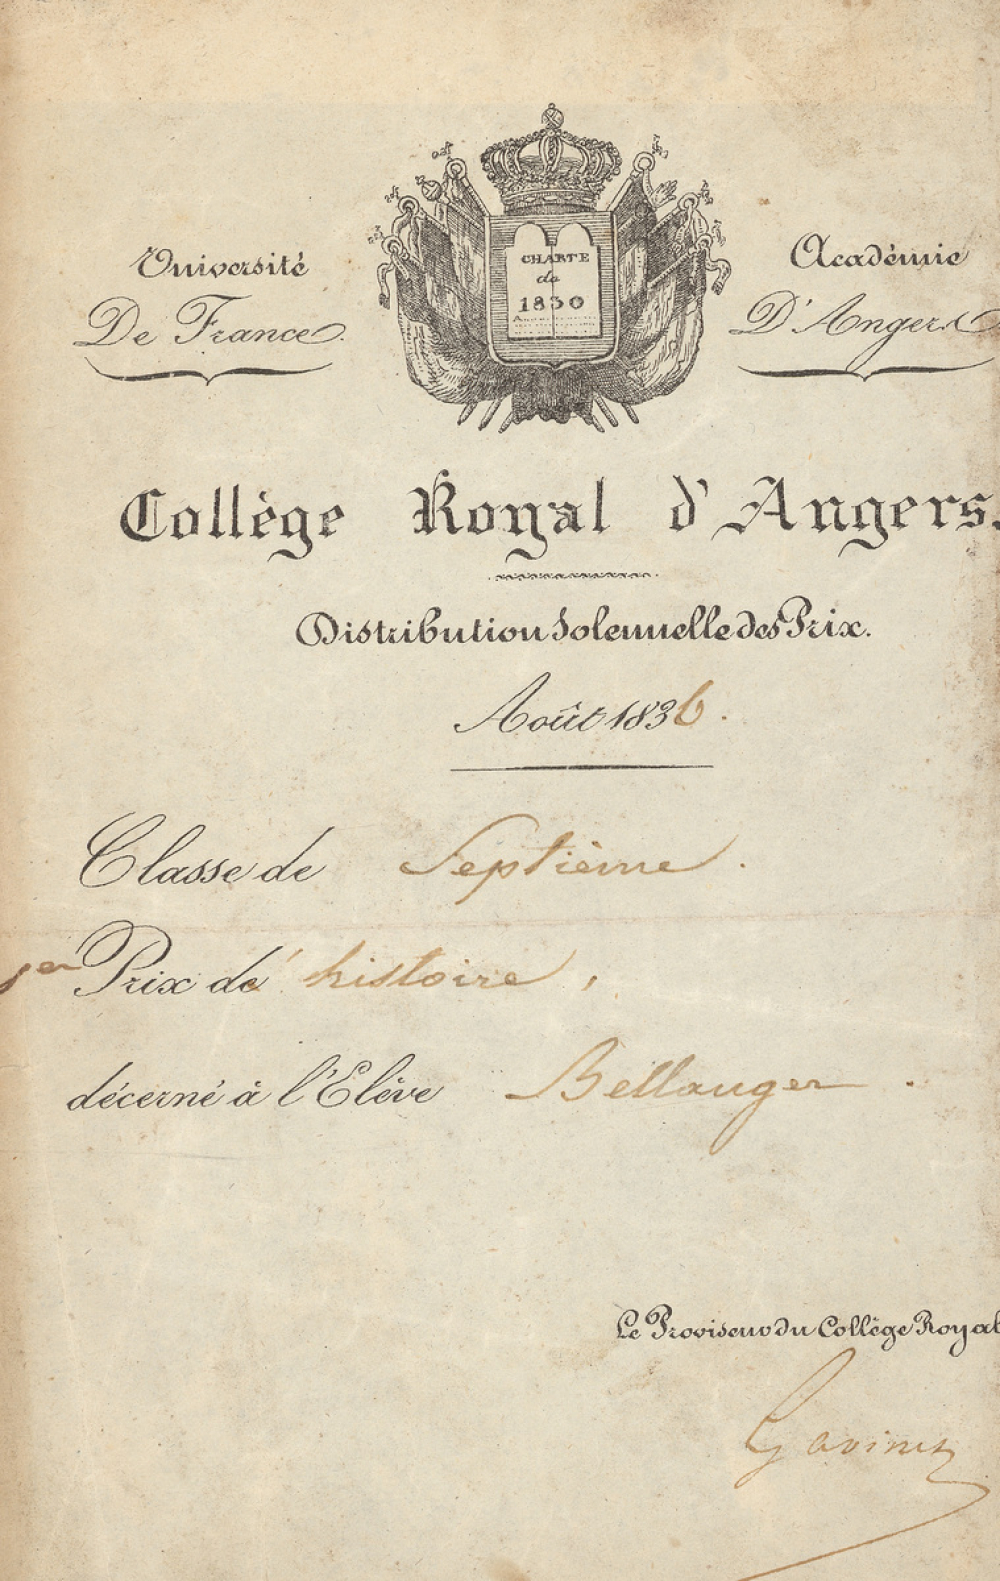 Université
De France.
Académie
D'Angers
CHARTE
de
1830
Collège Royal d'Angers.
Distribution Solennelle des Prix.
Août 1836.
Classe de Septième.
1er Prix de' histoire,
décerné à l'Elève Bellanger.
Le Proviseur du Collège Royal